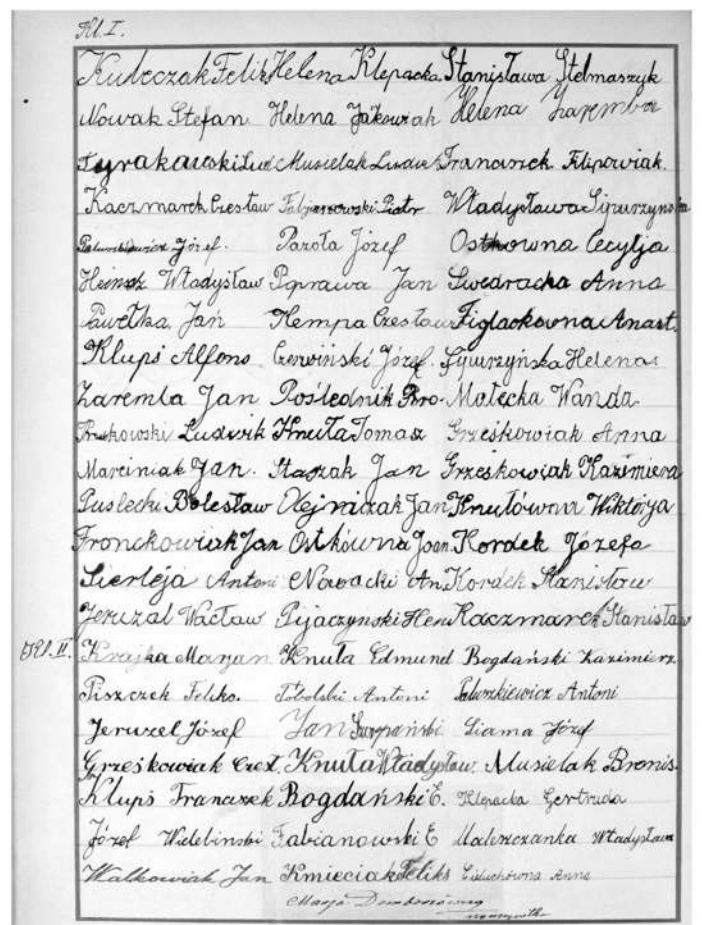 Kl. I.
Kubczak Feliks Helena Klepacka Stanisława Stelmaszyk
Nowak Stefan Helena Jakowiak Helena Zaremba
Tyrakowski Lud Musielak Ludwik Franciszek Filipowiak.
Kaczmarek Czesław Fabjanowski Piotr Władysława Sigurzyńska
Józef. Parola Józef Ostkowna Cecylja
Heinsz Władysław Poprawa Jan Swedracka Anna
Pawełka Jan Kempa Czesław Figlackowna Anast.
Klupś Alfons Czerwiński Józef. Helena
Zaremba Jan Poślednik Bro. Małecka Wanda
Ludwik Knuła Tomasz Grześkowiak Anna
Marciniak Jan. Staszak Jan Grześkowiak Kazimiera
Puslecki Bolesław Olejniczak Jan Knułówna Wiktorja
Fronckowiak Jan Ostkówna Joan. Kordek Józefa
Sierleja Antoni Nowacki An. Kordek Stanisław
Jeruzal Wacław Pijaczynski Hen Kaczmarek Stanisław
Kl. II. Krajka Marjan Knuła Edmund Bogdański Kazimierz.
Piszczek Feliks. Tobolski Antoni Paluszkiewicz Antoni
Jeruzel Józef Jan Szczepański Siama Józef
Grześkowiak Czes. Knuła Władysław. Musielak Bronis.
Klupś Franciszek Bogdański E. Klepacka Gertruda
Józef Widelinski Fabianowski E Maleszczanka Władysława
Walkowiak Jan Kmieciak Feliks Cieluchówna Anna
Marja